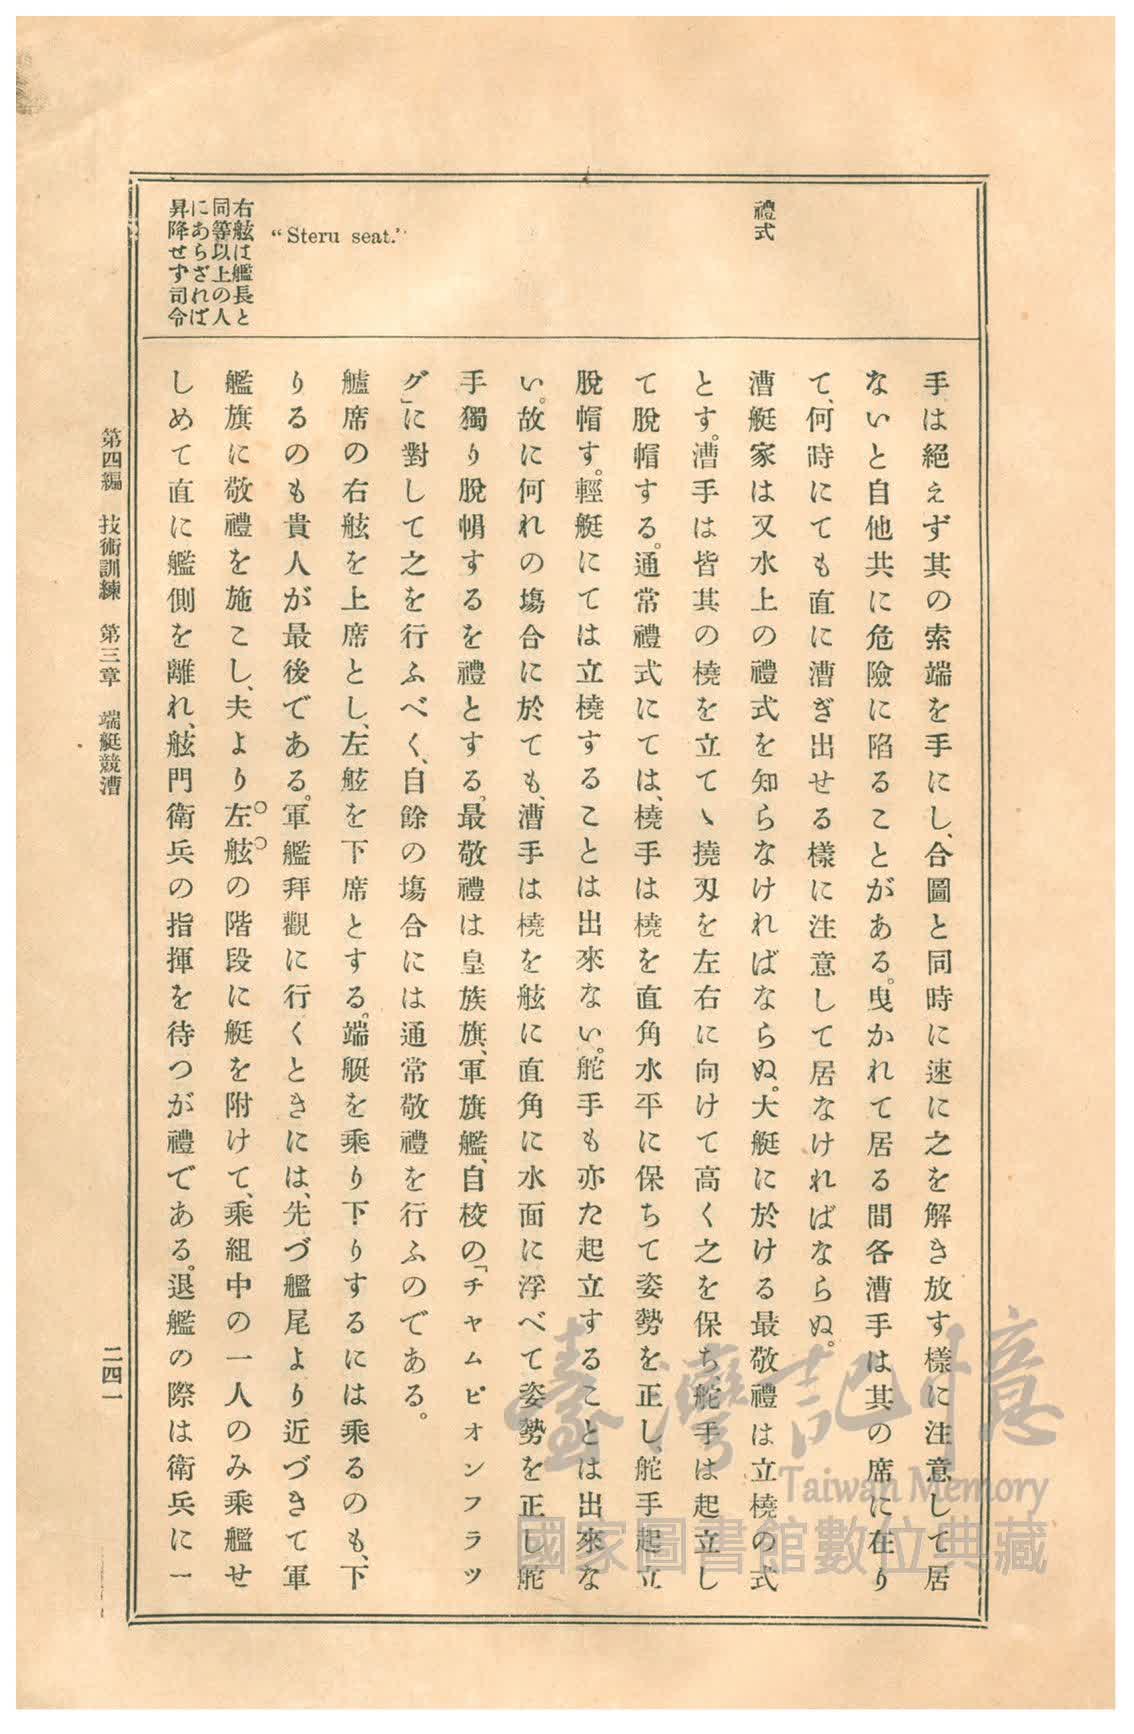 禮式
"Steru seat."
右舷は艦長と
同等以上の人
にあらざれば
昇降せず司令
手は絕えず其の索端を手にし、合圖と同時に速に之を解き放す樣に注意して居
ないと自他共に危險に陷ることがある。曳かれて居る間各漕手は其の席に在り
て、何時にても直に漕ぎ出せる樣に注意して居なければならぬ。
漕艇家は又水上の禮式を知らなければならぬ。大艇に於ける最敬禮は立橈の式
とす。漕手は皆其の橈を立てゝ撓刄を左右に向けて高く之を保ち、舵手は起立し
て脫帽する。通常禮式にては、橈手は橈を直角水平に保ちて姿勢を正し、舵手起立
脫帽す。輕艇にては立橈することは出來ない。舵手も亦た起立することは出來な
い。故に何れの塲合に於ても、漕手は橈を舷に直角に水面に浮べて姿勢を正し舵
手獨り脫帽するを禮とする。最敬禮は皇族旗、軍旗艦、自校の「チャムピオンフラッ
グ」に對して之を行ふべく、自餘の塲合には通常敬禮を行ふのである。
艫席の右舷を上席とし、左舷を下席とする。端艇を乘り下りするには乘るのも、下
りるのも貴人が最後である。軍艦拜觀に行くときには、先づ艦尾より近づきて軍
艦旗に敬禮を施こし、夫より左舷の階段に艇を附けて、乘組中の一人のみ乘艦せ
しめて直に艦側を離れ、舷門衛兵の指揮を待つが禮である。退艦の際は衛兵に一
第四編 技術訓練 第三章 端艇競漕
二四一
臺灣記憶
Taiwan Memory
國家圖書館數位典藏